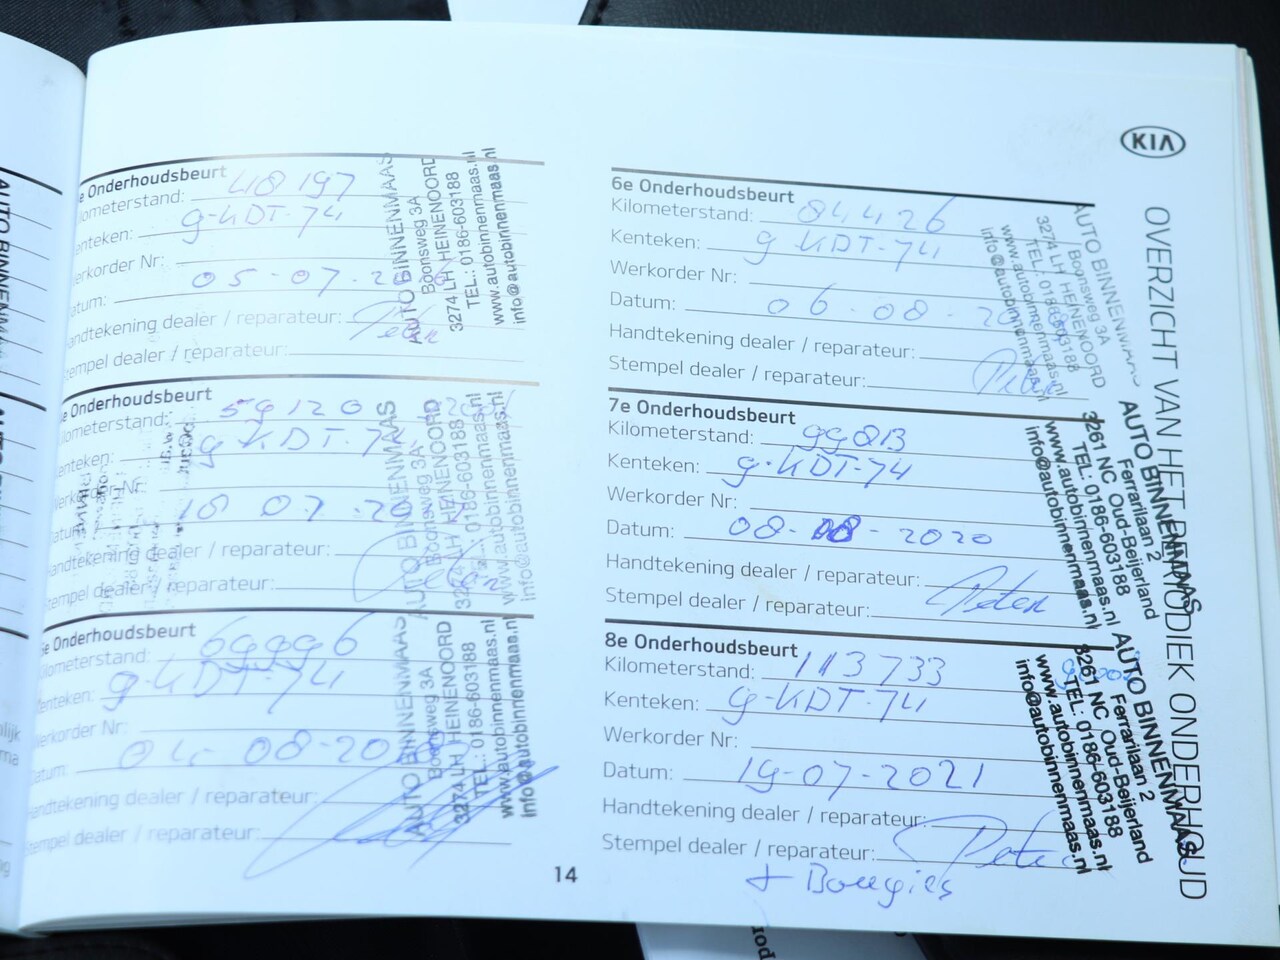 e Onderhoudsbeurt
ilometerstand: 48197
enteken: g-KDT-74
erkorder Nr:
atum: 05-07-2
andtekening dealer / reparateur: Peter
Stempel dealer / reparateur:
AUTO BINNENMAAS
Boonsweg 3A
3274 LH HEINENOORD
TEL.: 0186-603188
www.autobinnenmaas.nl
info@autobinnenmaas.nl
e Onderhoudsbeurt
ilometerstand: 59120
enteken: g-KDT-74
erkorder Nr:
atum: 18 07 20
andtekening dealer / reparateur:
tempel dealer / reparateur:
AUTO BINNENMAAS
Boonsweg 3A
3274 LH HEINENOORD
TEL.: 0186-603188
www.autobinnenmaas.nl
info@autobinnenmaas.nl
e Onderhoudsbeurt
ilometerstand: 69996
Kenteken: g-KDT-74
Werkorder Nr:
Datum: 04-08-20
Handtekening dealer / reparateur:
tempel dealer / reparateur:
AUTO BINNENMAAS
Boonsweg 3A
3274 LH HEINENOORD
TEL.: 0186-603188
www.autobinnenmaas.nl
info@autobinnenmaas.nl
14
KIA
OVERZICHT VAN HET PERIODIEK ONDERHOUD
6e Onderhoudsbeurt
Kilometerstand: 84426
Kenteken: g-KDT-74
Werkorder Nr:
Datum: 06-08-20
Handtekening dealer / reparateur:
Stempel dealer / reparateur: Peter
AUTO BINNENMAAS
Boonsweg 3A
3274 LH HEINENOORD
TEL.: 0186-603188
www.autobinnenmaas.nl
info@autobinnenmaas.nl
7e Onderhoudsbeurt
Kilometerstand: 99813
Kenteken: g-KDT-74
Werkorder Nr:
Datum: 08-08-2020
Handtekening dealer / reparateur: Peter
Stempel dealer / reparateur:
AUTO BINNENMAAS
Ferrarilaan 2
3261 NC Oud-Beijerland
TEL: 0186-603188
www.autobinnenmaas.nl
info@autobinnenmaas.nl
8e Onderhoudsbeurt
Kilometerstand: 113733
Kenteken: g-KDT-74
Werkorder Nr:
Datum: 19-07-2021
Handtekening dealer / reparateur:
Stempel dealer / reparateur: Peter
+ Bougies
AUTO BINNENMAAS
Ferrarilaan 2
3261 NC Oud-Beijerland
TEL: 0186-603188
www.autobinnenmaas.nl
info@autobinnenmaas.nl